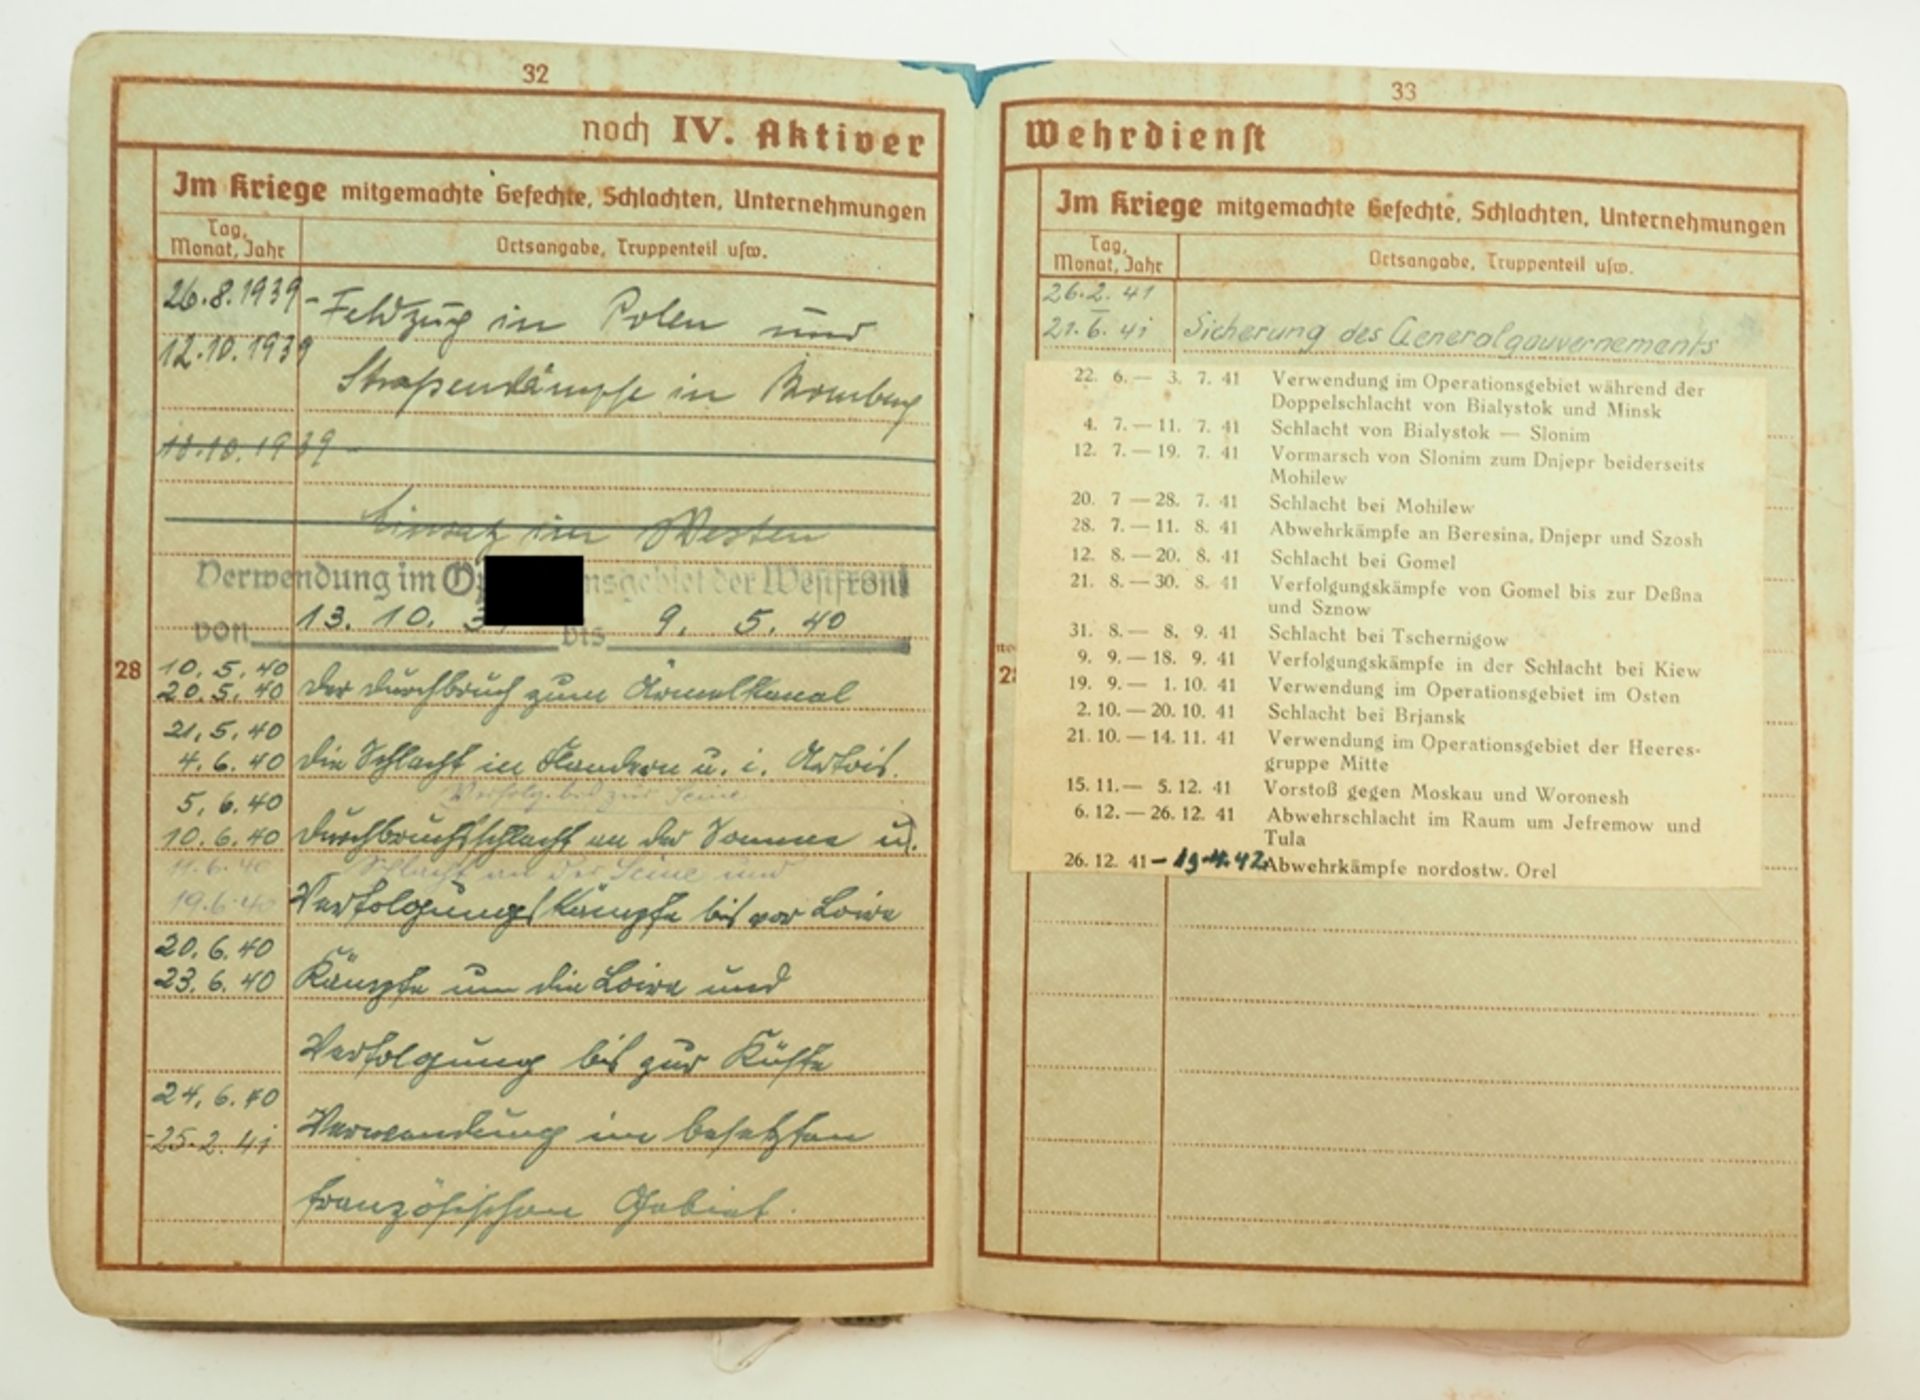 32
noch IV. Aktiver
Im Kriege mitgemachte Gefechte, Schlachten, Unternehmungen
Tag, Monat, Jahr
Ortsangabe, Truppenteil usw.
26.8.1939 - Feldzug in Polen und
12.10.1939 Straßenkämpfe in Bromberg
13.10.1939 -
Einsatz im Westen
Verwendung im Op nsgebiet der Westfront
von 13. 10. 39 bis 9. 5. 40
28
10.5.40
20.5.40 Der Durchbruch zum Ärmelkanal
21.5.40
4.6.40 Die Schlacht in Flandern u. i. Artois.
Verfolg. bis zur Seine
5.6.40
10.6.40 Durchbruchsschlacht an der Somme u.
11.6.40 Schlacht an der Seine und
19.6.40 Verfolgungskämpfe bis vor Loire
20.6.40
23.6.40 Kämpfe um die Loire und
Verfolgung bis zur Küste
24.6.40
-25.2.41 Verwendung im besetzten
französischen Gebiet.
33
Wehrdienst
Im Kriege mitgemachte Gefechte, Schlachten, Unternehmungen
Tag, Monat, Jahr
Ortsangabe, Truppenteil usw.
26.2.41 -
21.6.41 Sicherung des Generalgouvernements
22. 6. — 3. 7. 41 Verwendung im Operationsgebiet während der
Doppelschlacht von Bialystok und Minsk
4. 7. — 11. 7. 41 Schlacht von Bialystok — Slonim
12. 7. — 19. 7. 41 Vormarsch von Slonim zum Dnjepr beiderseits
Mohilew
20. 7 — 28. 7. 41 Schlacht bei Mohilew
28. 7. — 11. 8. 41 Abwehrkämpfe an Beresina, Dnjepr und Szosh
12. 8. — 20. 8. 41 Schlacht bei Gomel
21. 8. — 30. 8. 41 Verfolgungskämpfe von Gomel bis zur Deßna
und Sznow
31. 8. — 8. 9. 41 Schlacht bei Tschernigow
9. 9. — 18. 9. 41 Verfolgungskämpfe in der Schlacht bei Kiew
19. 9. — 1. 10. 41 Verwendung im Operationsgebiet im Osten
2. 10. — 20. 10. 41 Schlacht bei Brjansk
21. 10. — 14. 11. 41 Verwendung im Operationsgebiet der Heeres-
gruppe Mitte
15. 11. — 5. 12. 41 Vorstoß gegen Moskau und Woronesh
6. 12. — 26. 12. 41 Abwehrschlacht im Raum um Jefremow und
Tula
26. 12. 41 - 19.4.42 Abwehrkämpfe nordostw. Orel